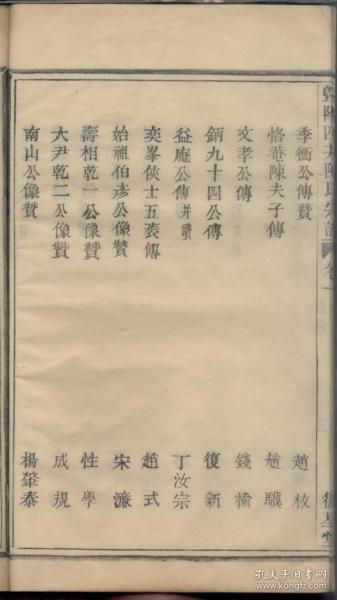 季衡公傳贊 趙枚
恪菴陳夫子傳 趙驥
文孝公傳 錢楡
鈵九十四公傳 復新
益庵公傳并贊 丁汝宗
奕峯俠士五袠傳 趙式
始祖伯彥公像贊 宋濂
壽相乾一公像贊 性學
大尹乾二公像贊 成規
南山公像贊 楊肇泰
孔夫子旧书网